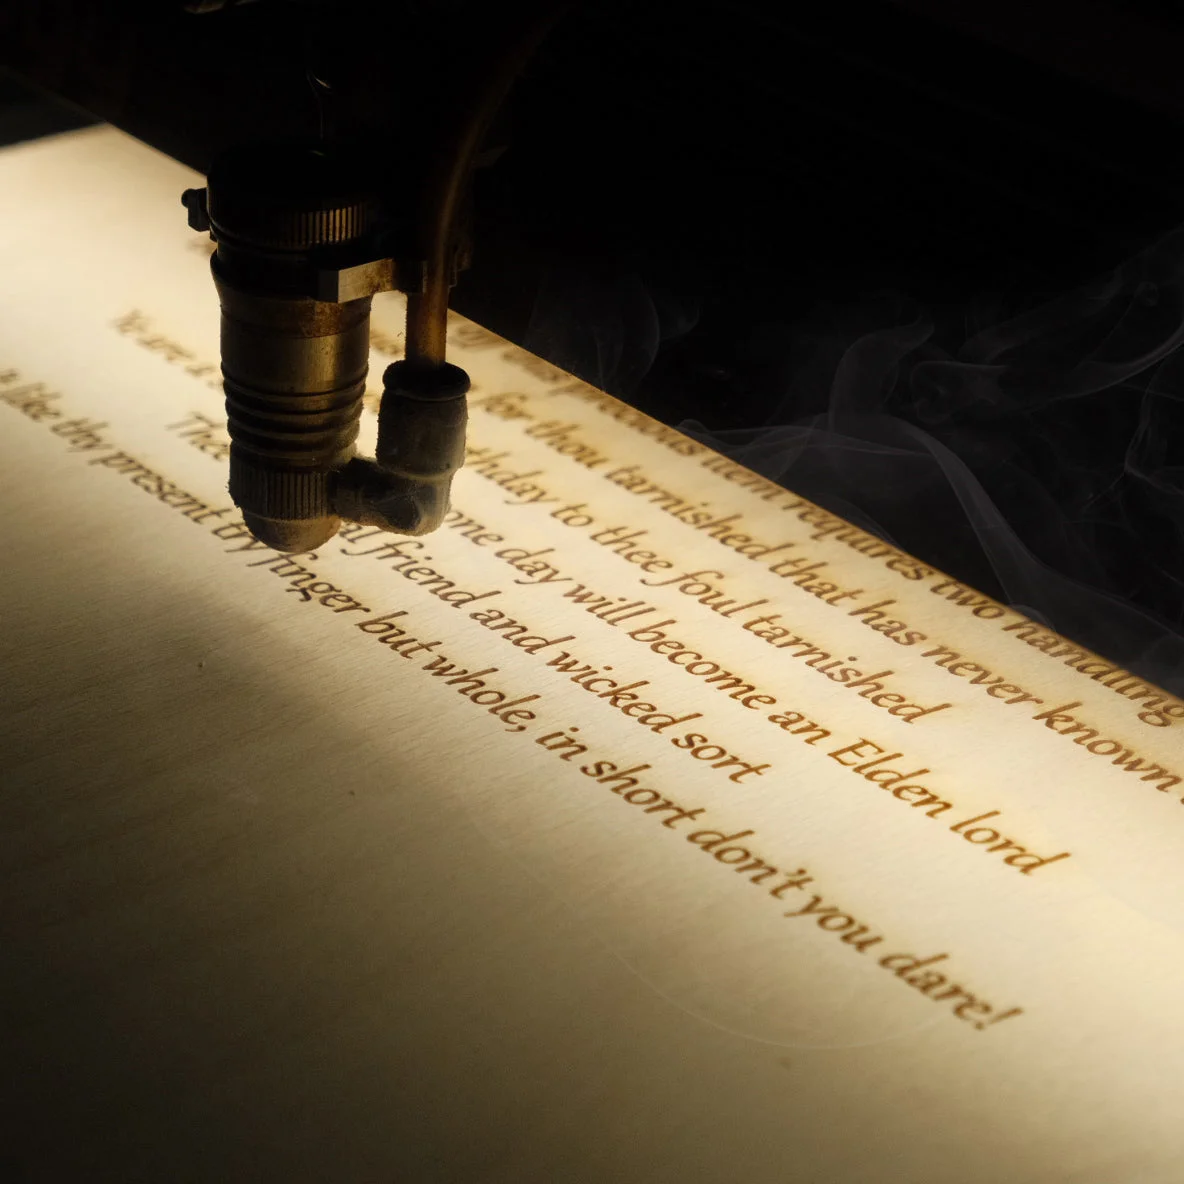 precious item requires two handling
for thou tarnished that has never known
thday to thee foul tarnished
one day will become an Elden lord
friend and wicked sort
like thy present try finger but whole, in short don't you dare!